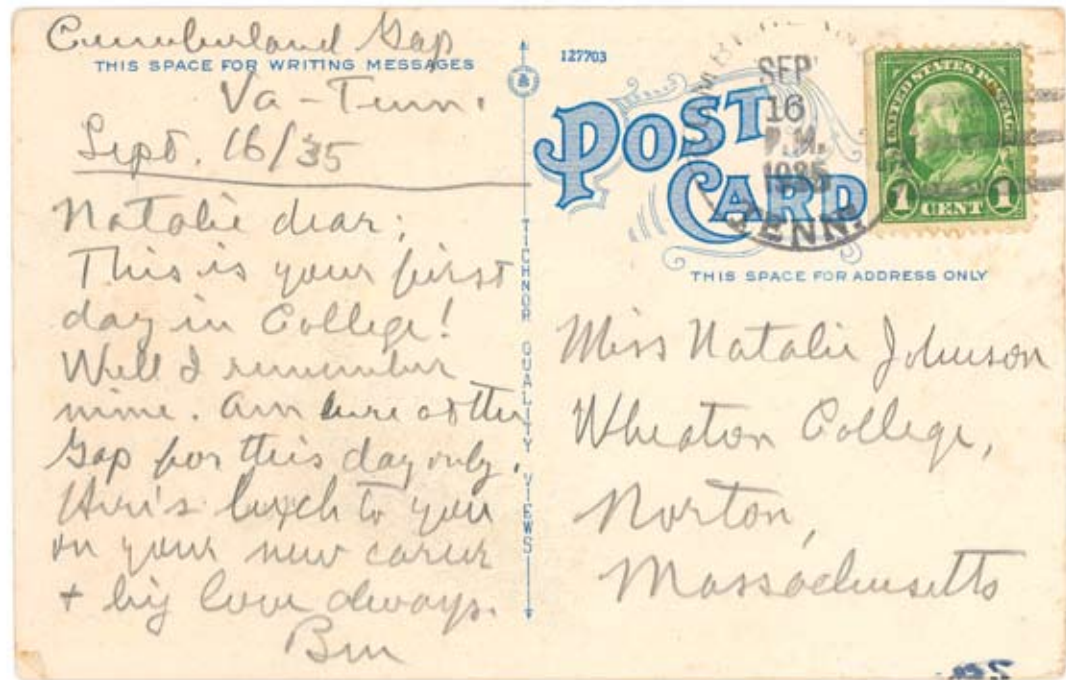 Cumberland Gap
THIS SPACE FOR WRITING MESSAGES
Va - Tenn.
Sept. 16/35
Natalie dear;
This is your first
day in College!
Well I remember
mine. Am here at the
Gap for this day only.
Here's luck to you
on your new career
+ big love always.
127703
POST
CARD
SEP
16
P.M.
1935
TENN.
UNITED STATES POSTAGE
1 CENT 1
THIS SPACE FOR ADDRESS ONLY
TICHNOR QUALITY VIEWS
Miss Natalie Johnson
Wheaton College,
Norton,
Massachusetts